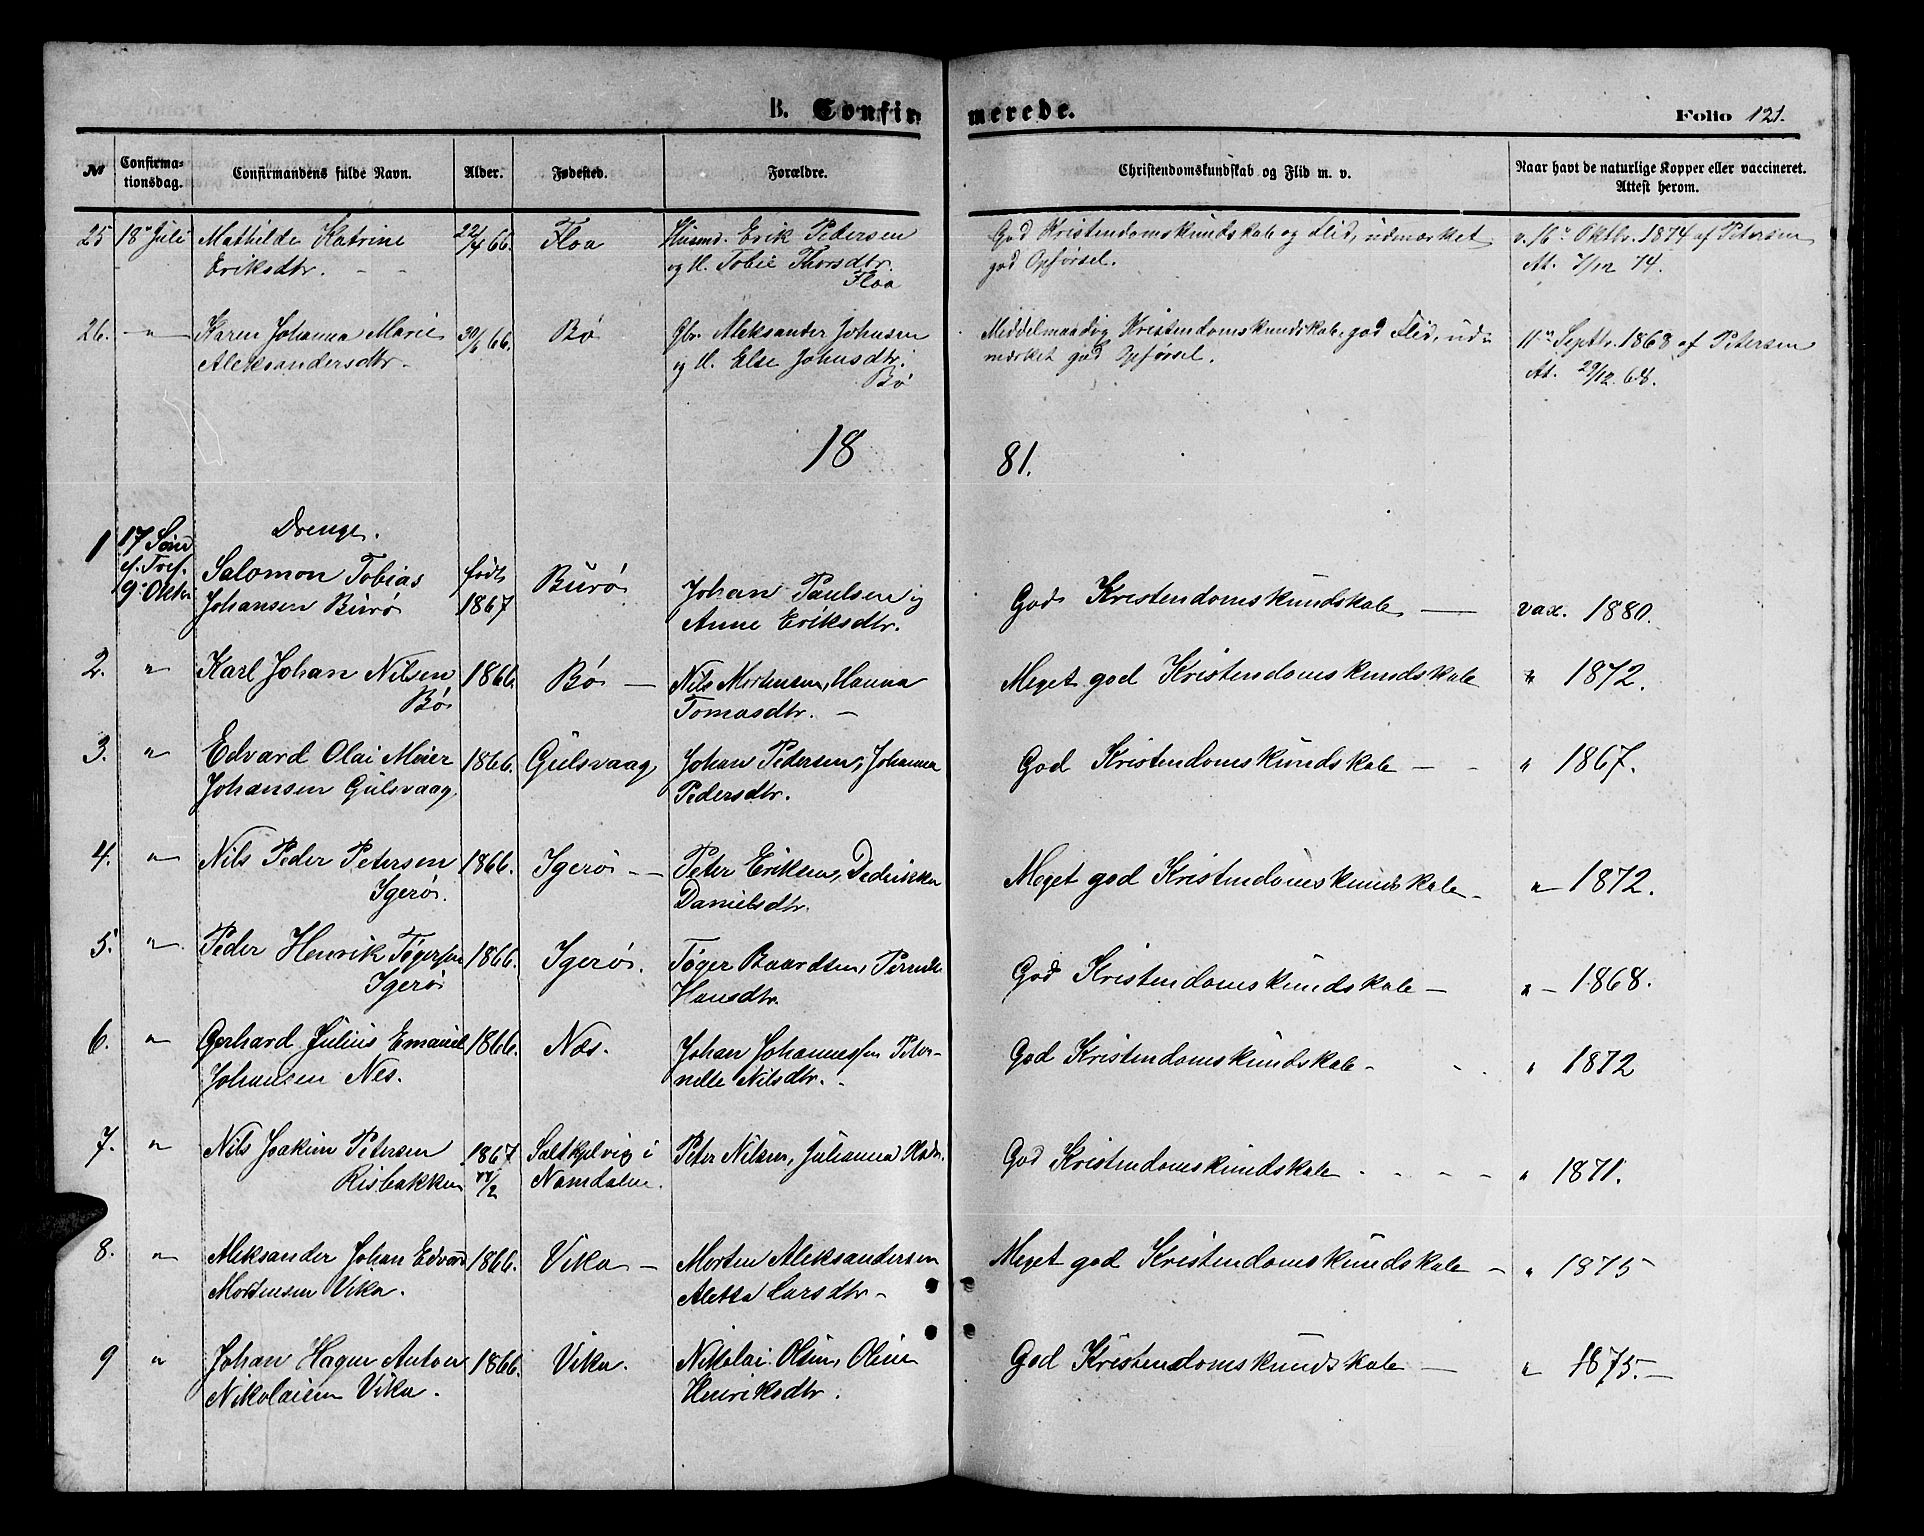 B. Confirmerede.
Folio 121.
№ Confirmationsdag. Confirmandens fulde Navn. Alder. Fødested. Forældre. Christendomskundskab og Flid m. v. Naar havt de naturlige Kopper eller vaccineret. Attest herom.
25 18de Juli Mathilde Katrine 22/4 66. Floa Husmd. Erik Pedersen God Kristendomskundskab og Flid, udmærket v. 16de Oktbr. 1874 af Petersen
Eriksdtr. og H. Tobie Thorsdtr. god Opførsel. At. 7/12 74.
Floa
26. " Karen Johanna Marie 30/6 66. Bø Gbr. Aleksander Johnsen Middelmaadig Kristendomskundskab, god Flid, ud- 11te Septbr. 1868 af Petersen
Aleksandersdtr. og H. Else Johnsdtr. mærket god Opførsel. At. 29/12 68.
Bø
18 81.
Drenge.
1 17 Sønd
e. Tref. Salomon Tobias født Burø Johan Paulsen og God Kristendomskundskab — vax. 1880.
9de Oktbr Johansen Burø 1867 Anne Eriksdtr.
2. " Karl Johan Nilsen 1866. Bø — Nils Mortensen, Hanna Meget god Kristendomskundskab " 1872.
Bø Tomasdtr. —
3. " Edvard Olai Meier 1866. Gulsvaag, Johan Pedersen, Johanna God Kristendomskundskab — " 1867.
Johansen Gulsvaag. Pedersdtr.
4. " Nils Peder Petersen 1866. Igerø — Peter Eriksen, Dedrikka Meget god Kristendomskundskab — " 1872.
Igerø. Danielsdtr.
5. " Peder Henrik Tøgersen 1866. Igerø. Tøger Baardsen, Pernille God Kristendomskundskab — " — 1868.
Igerø Hansdtr.
6. " Gerhard Julius Emanuel 1866. Nes. Johan Johannessen Peter- God Kristendomskundskab — " 1872
Johansen Nes. nelle Nilsdtr.
7. " Nils Joakim Petersen 1867 i Peter Nilsen, Julianna God Kristendomskundskab " 1871.
Risbakken /2 Namdalen.
8. " Aleksander Johan Edvard 1866. Vika — Morten Aleksandersen Meget god Kristendomskundskab — " 1875
Mortensen Vika. Aletta Larsdtr —
9 " Johan Hagen Anton 1866. Vika. Nikolai Olsen, Oline God Kristendomskundskab — " 1875. —
Nikolaisen Vika. Henriksdtr.